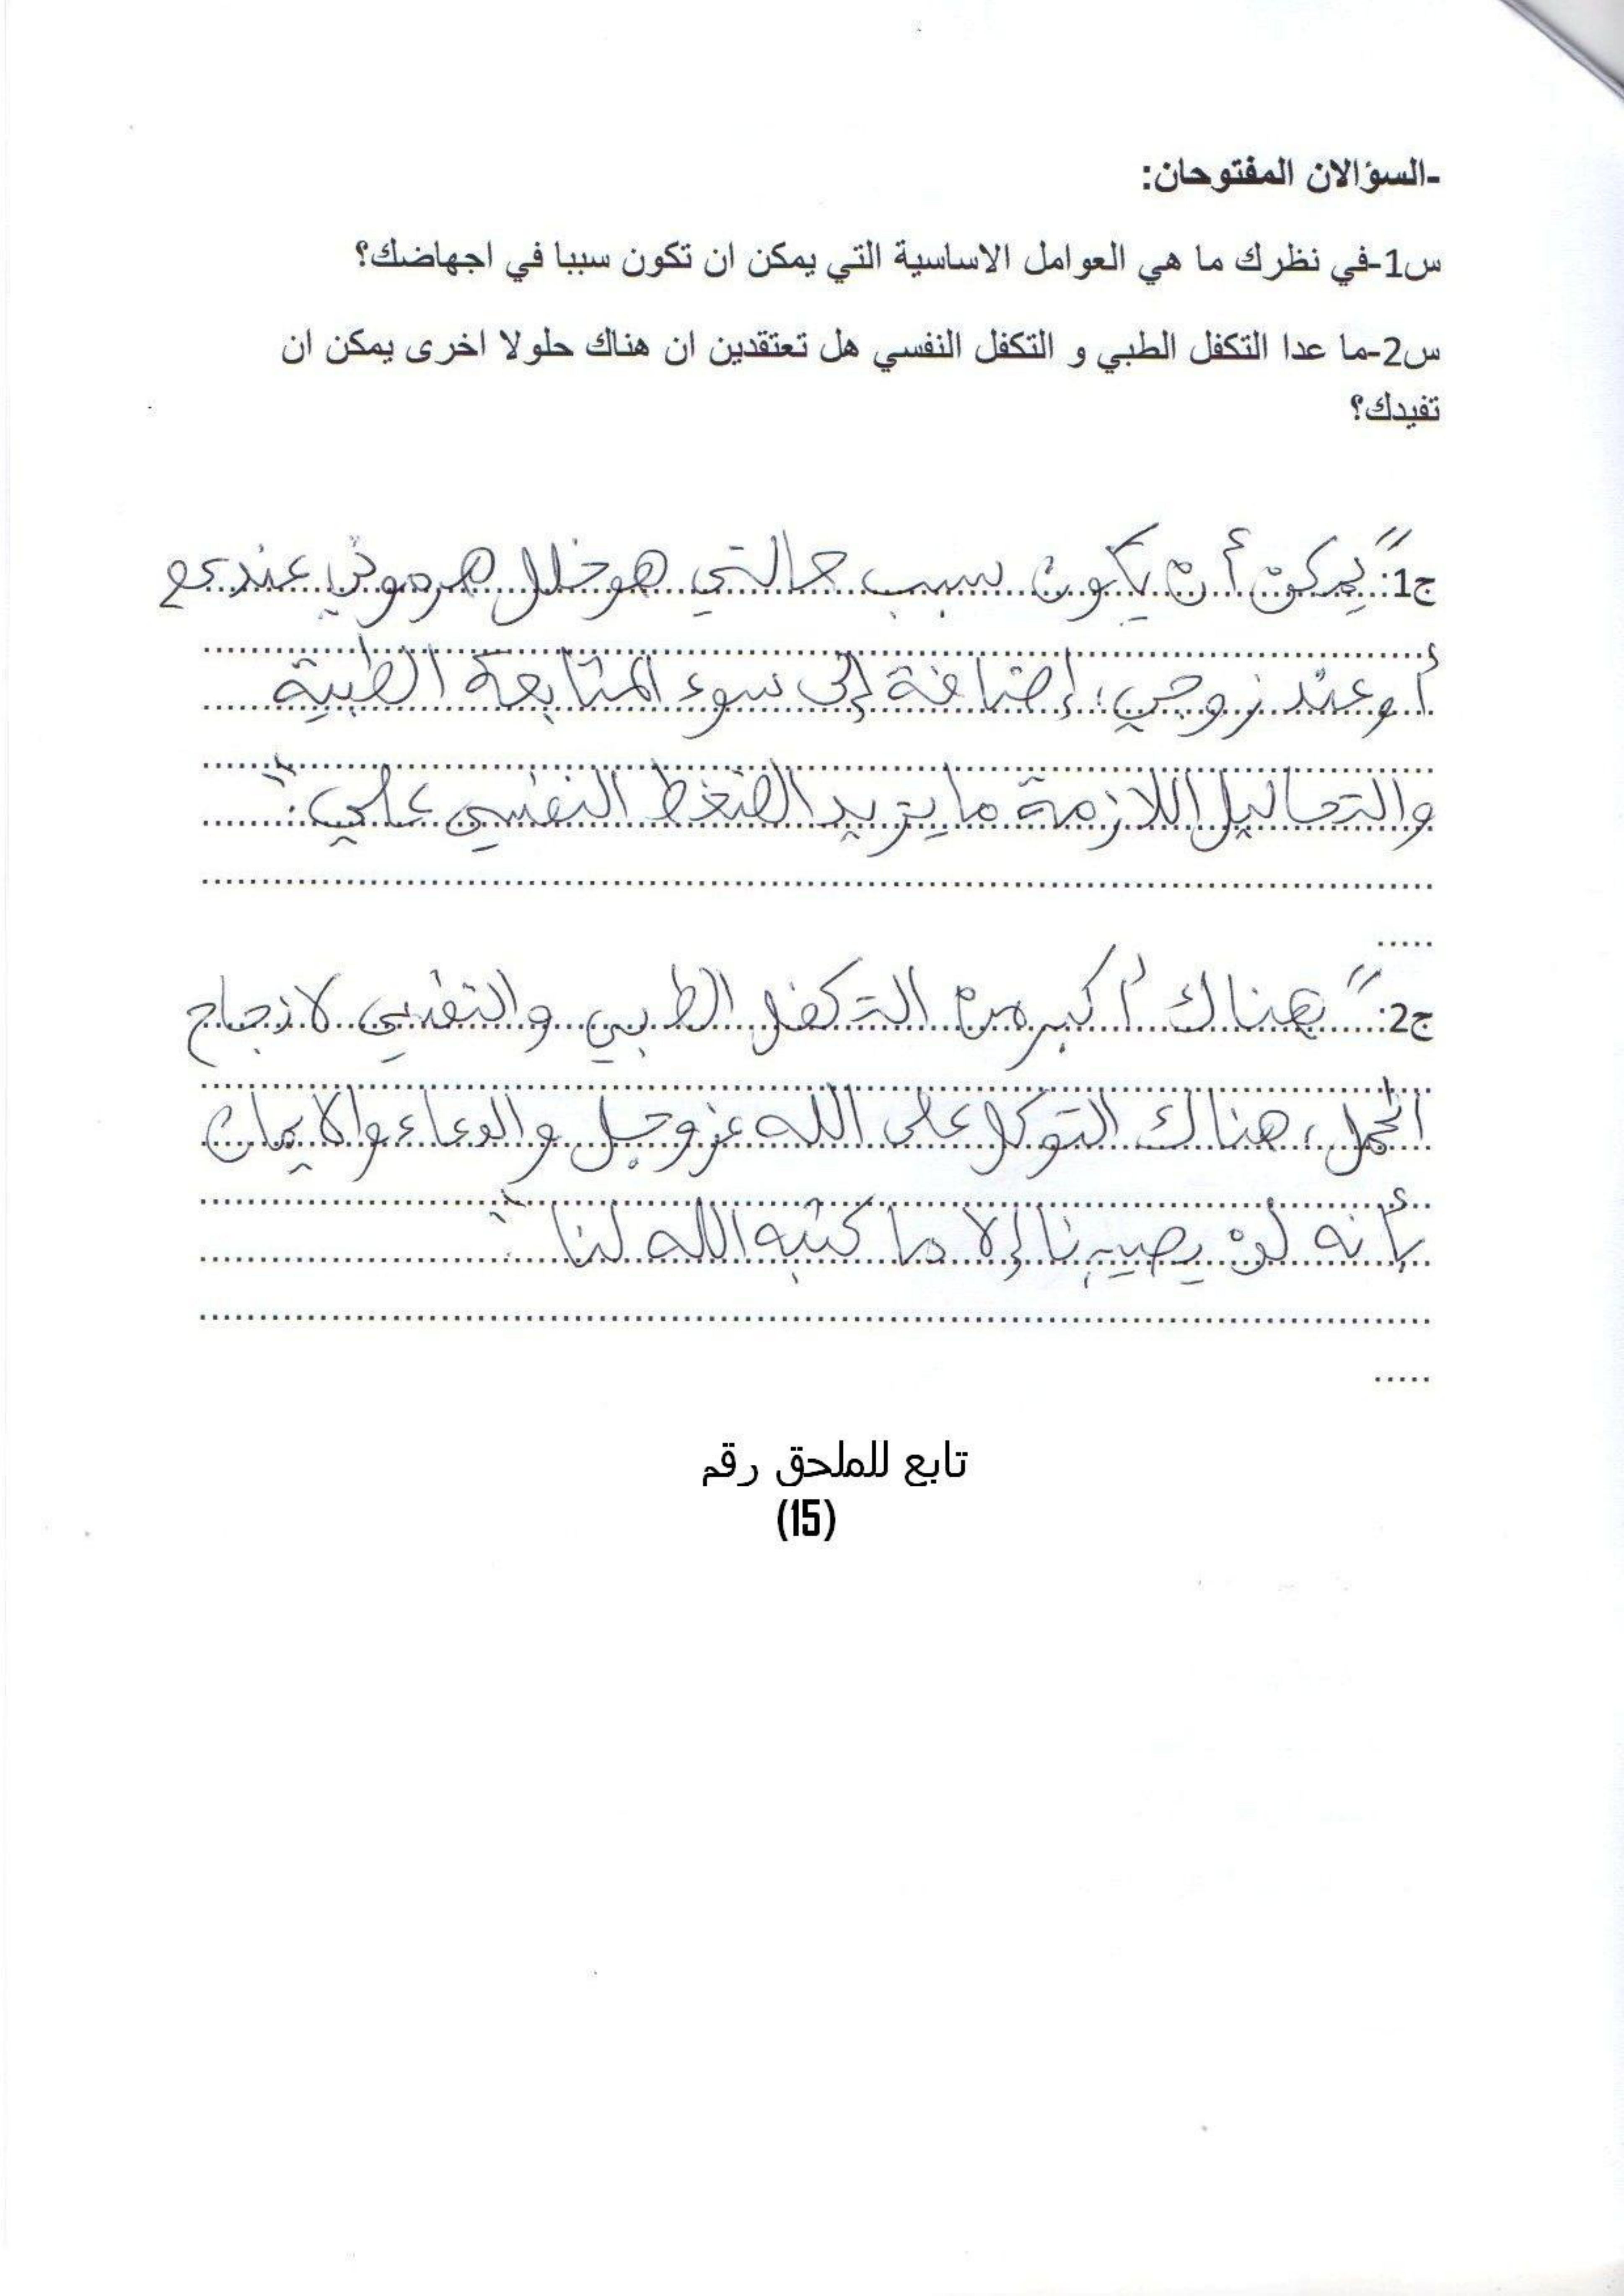 -السؤالان المفتوحان:
س1-في نظرك ما هي العوامل الاساسية التي يمكن ان تكون سببا في اجهاضك؟
س2-ما عدا التكفل الطبي و التكفل النفسي هل تعتقدين ان هناك حلولا اخرى يمكن ان
تفيدك؟
ج1: "يمكن أن يكون سبب حالتي هو خلل هرموني عندي
أو عند زوجي، إضافة إلى سوء المتابعة الطبية
والتحاليل اللازمة ما يزيد الضغط النفسي علي."
ج2: "هناك أكبر من التكفل الطبي والنفسي لانجاح
الحمل، هناك التوكل على الله عز وجل والدعاء والايمان
بأنه لن يصيبنا إلا ما كتبه الله لنا".
تابع للملحق رقم
(15)